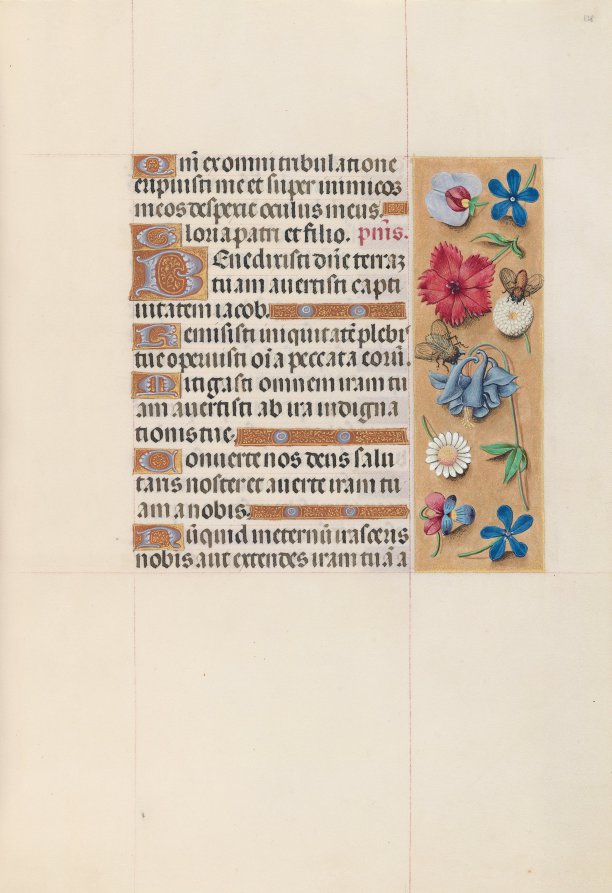 Qm̄ ex omni tribulatione
eripuisti me et super inimicos
meos despexit oculus meus.
Gloria patri et filio. psm̄s.
Benedixisti dn̄e terraz
tuam auertisti capti
uitatem iacob.
Remisisti iniquitatē plebis
tue operuisti oīa peccata eorū.
Mitigasti omnem iram tu
am auertisti ab ira indigna
tionis tue.
Conuerte nos deus salu
taris noster et auerte iram tu
am a nobis.
Nūquid in eternū irasceris
nobis aut extendes iram tuā a